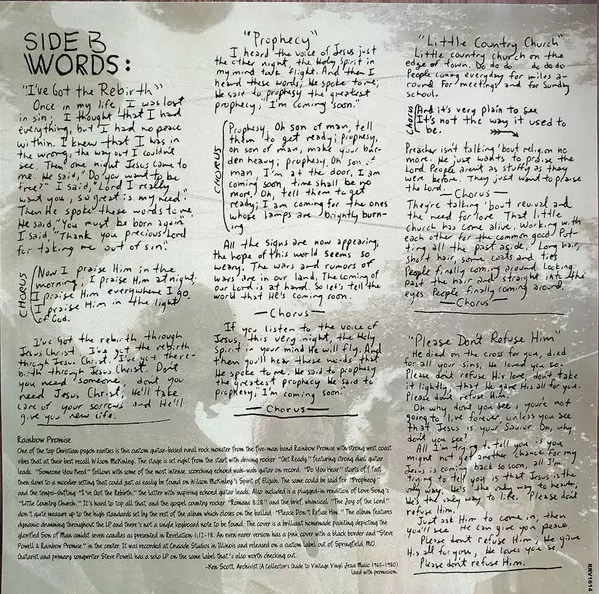 SIDE B
WORDS:
"I've Got the Rebirth"
Once in my life, I was lost
in sin; I thought that I had
everything, but I had no peace
within. I knew that I was in
the wrong, the way out I couldn't
see. Then one night Jesus came to
me. He said, "Do you want to be
free?" I said, "Lord I really
want you, so great is my need."
Then He spoke these words to me,
He said, "You must be born again"
I said, "Thank you precious Lord
for taking me out of sin."
CHORUS
Now I praise Him in the
morning; I praise Him at night,
I praise Him everywhere I go,
I praise Him in the light
of God.
I've got the rebirth through
Jesus Christ. I've got the rebirth
through Jesus Christ. I've got the re-
birth through Jesus Christ. Don't
you need someone, don't you
need Jesus Christ, He'll take
care of your sorrows and He'll
give you new life.
"Prophecy"
I heard the voice of Jesus just
the other night, the Holy Spirit in
my mind took flight. And then I
heard these words; He spoke to me;
He said to prophesy the greatest
prophecy, "I'm coming soon."
CHORUS
Prophesy, Oh son of man, tell
them to get ready; prophesy,
oh son of man, make your bur-
den heavy; prophesy, Oh son of
man, I'm at the door, I am
coming soon time shall be no
more, Oh, tell them to get
ready; I am coming for the ones
whose lamps are brightly burn-
ing
All the signs are now appearing,
the hope of this world seems so
weary. The wars and rumors of
wars are in our land. The coming of
our Lord is at hand. So let's tell the
world that He's coming soon.
—Chorus—
If you listen to the voice of
Jesus, this very night, the Holy
Spirit in your mind He will fly. And
then you'll hear these words that
He spoke to me. He said to prophesy
the greatest prophecy He said to
prophesy, "I'm coming soon."
—Chorus—
"Little Country Church"
Little country church on the
edge of town. Do do do, do do do
People coming everyday for miles a-
round For meetings and for Sunday
school.
CHORUS
And it's very plain to see
It's not the way it used to
be.
Preacher isn't talking 'bout religion no
more. He just wants to praise the
Lord People aren't as stuffy as they
were before. They just want to praise
the Lord.
—Chorus—
They're talking 'bout revival and
the need for love That little
church has come alive. Working with
each other for the common good Put-
ting all the past aside. Long hair,
short hair, some coats and ties
People finally coming around. Looking
past the hair and straight into the
eyes People finally coming around.
—Chorus—
"Please Don't Refuse Him"
He died on the cross for you, died
for all your sins, He loved you so.
Please don't refuse His love, don't take
it lightly, that He gave His all for you,
Please don't refuse Him.
Oh why don't you see, you're not
going to live forever, unless you see
that Jesus is your Savior Oh, why
don't you see?
All I'm trying to tell you is you
might not get another chance for my
Jesus is coming back so soon, all I'm
trying to tell you is that Jesus is the
only way. He's the way to heaven,
He's the only way to life. Please don't
refuse Him.
Just ask Him to come in, then
you'll see He can give you peace,
Please don't refuse Him, He gave
His all for you, He loves you so,
Please don't refuse Him.
Rainbow Promise
One of the top Christian psych rarities is this custom guitar-based rural rock monster from the five-man band Rainbow Promise with strong west coast
vibes that at their best recall Wilson McKinley. The stage is set right from the start with driving rocker "Get Ready," featuring strong dual guitar
leads. "Someone You Need" follows with some of the most intense, scorching echoed wah-wah guitar on record. "Do You Hear" starts off fast
then slows to a moodier setting that could just as easily be found on Wilson McKinley's Spirit of Elijah. The same could be said for "Prophecy"
and the tempo-shifting "I've Got the Rebirth," the latter with inspiring echoed guitar leads. Also included is a plugged-in rendition of Love Song's
"Little Country Church." It's hard to top all that, and the gospel country rocker "Romans 8:28" and the brief, whimsical "The Joy of the Lord"
don't quite measure up to the high standards set by the rest of the album which closes on the ballad "Please Don't Refuse Him." The album features
dynamic drumming throughout the LP and there's not a single keyboard note to be found. The cover is a brilliant homemade painting depicting the
glorified Son of Man amidst seven candles as presented in Revelation 1:12-18. An even rarer version has a pink cover with a black border and "Steve
Powell & Rainbow Promise" in the center. It was recorded at Crusade Studios in Illinois and released on a custom label out of Springfield, MO.
Guitarist and primary songwriter Steve Powell has a solo LP on the same label that's also worth checking out.
-Ken Scott, Archivist (A Collector's Guide to Vintage Vinyl Jesus Music 1965-1980)
Used with permission.
RRV1514